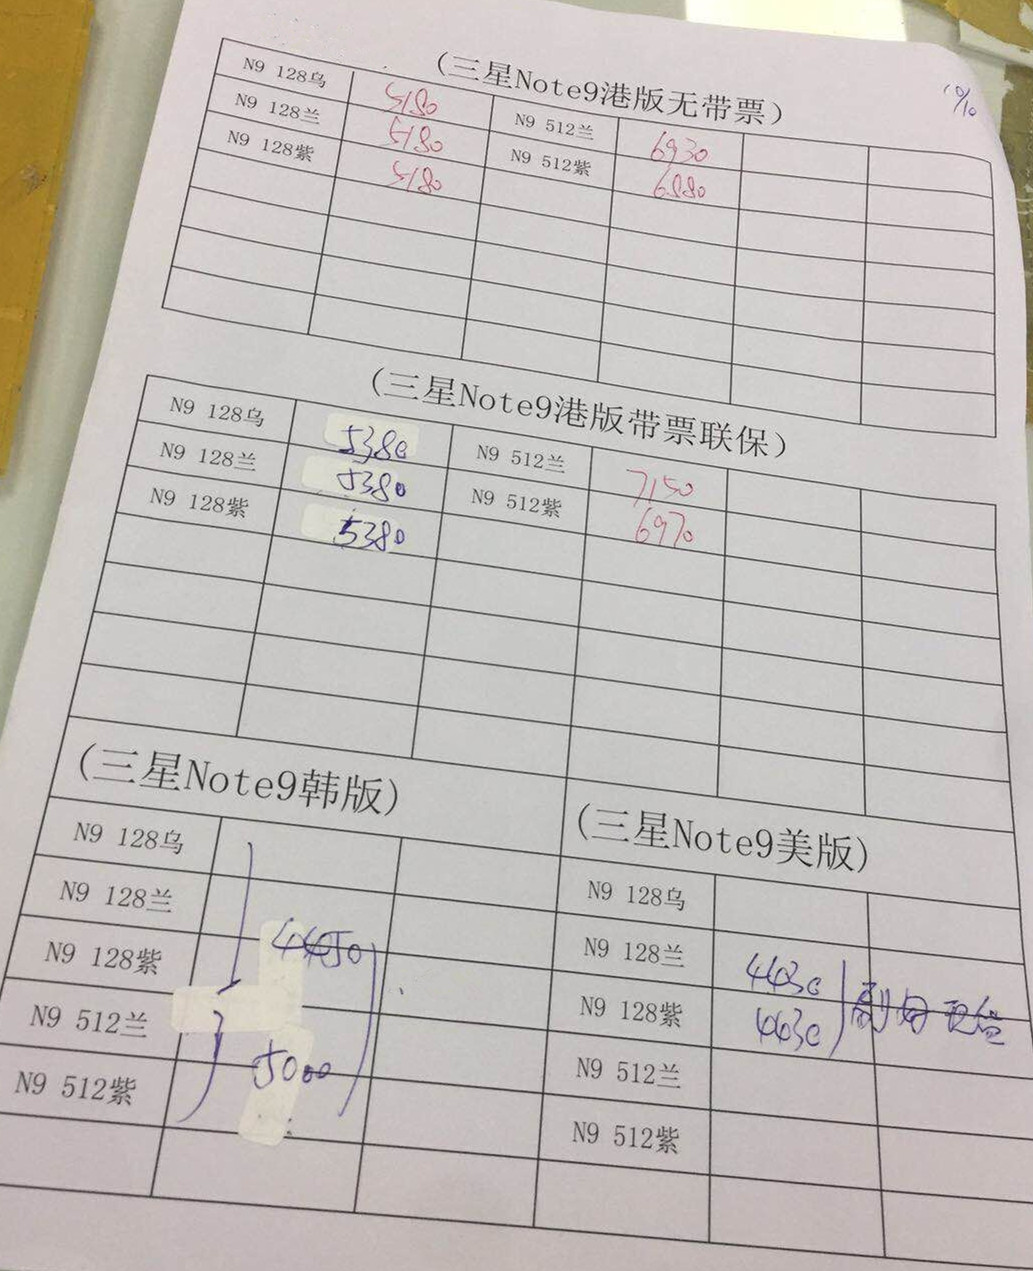 (三星Note9港版无带票)
10/10
N9 128乌 5180
N9 128兰 5180 N9 512兰 6930
N9 128紫 5180 N9 512紫 6880
(三星Note9港版带票联保)
N9 128乌 5380
N9 128兰 5380 N9 512兰 7150
N9 128紫 5380 N9 512紫 6970
(三星Note9韩版)
N9 128乌
N9 128兰
N9 128紫 4450
N9 512兰
N9 512紫 5000
(三星Note9美版)
N9 128乌
N9 128兰 4430
N9 128紫 4430
N9 512兰
N9 512紫